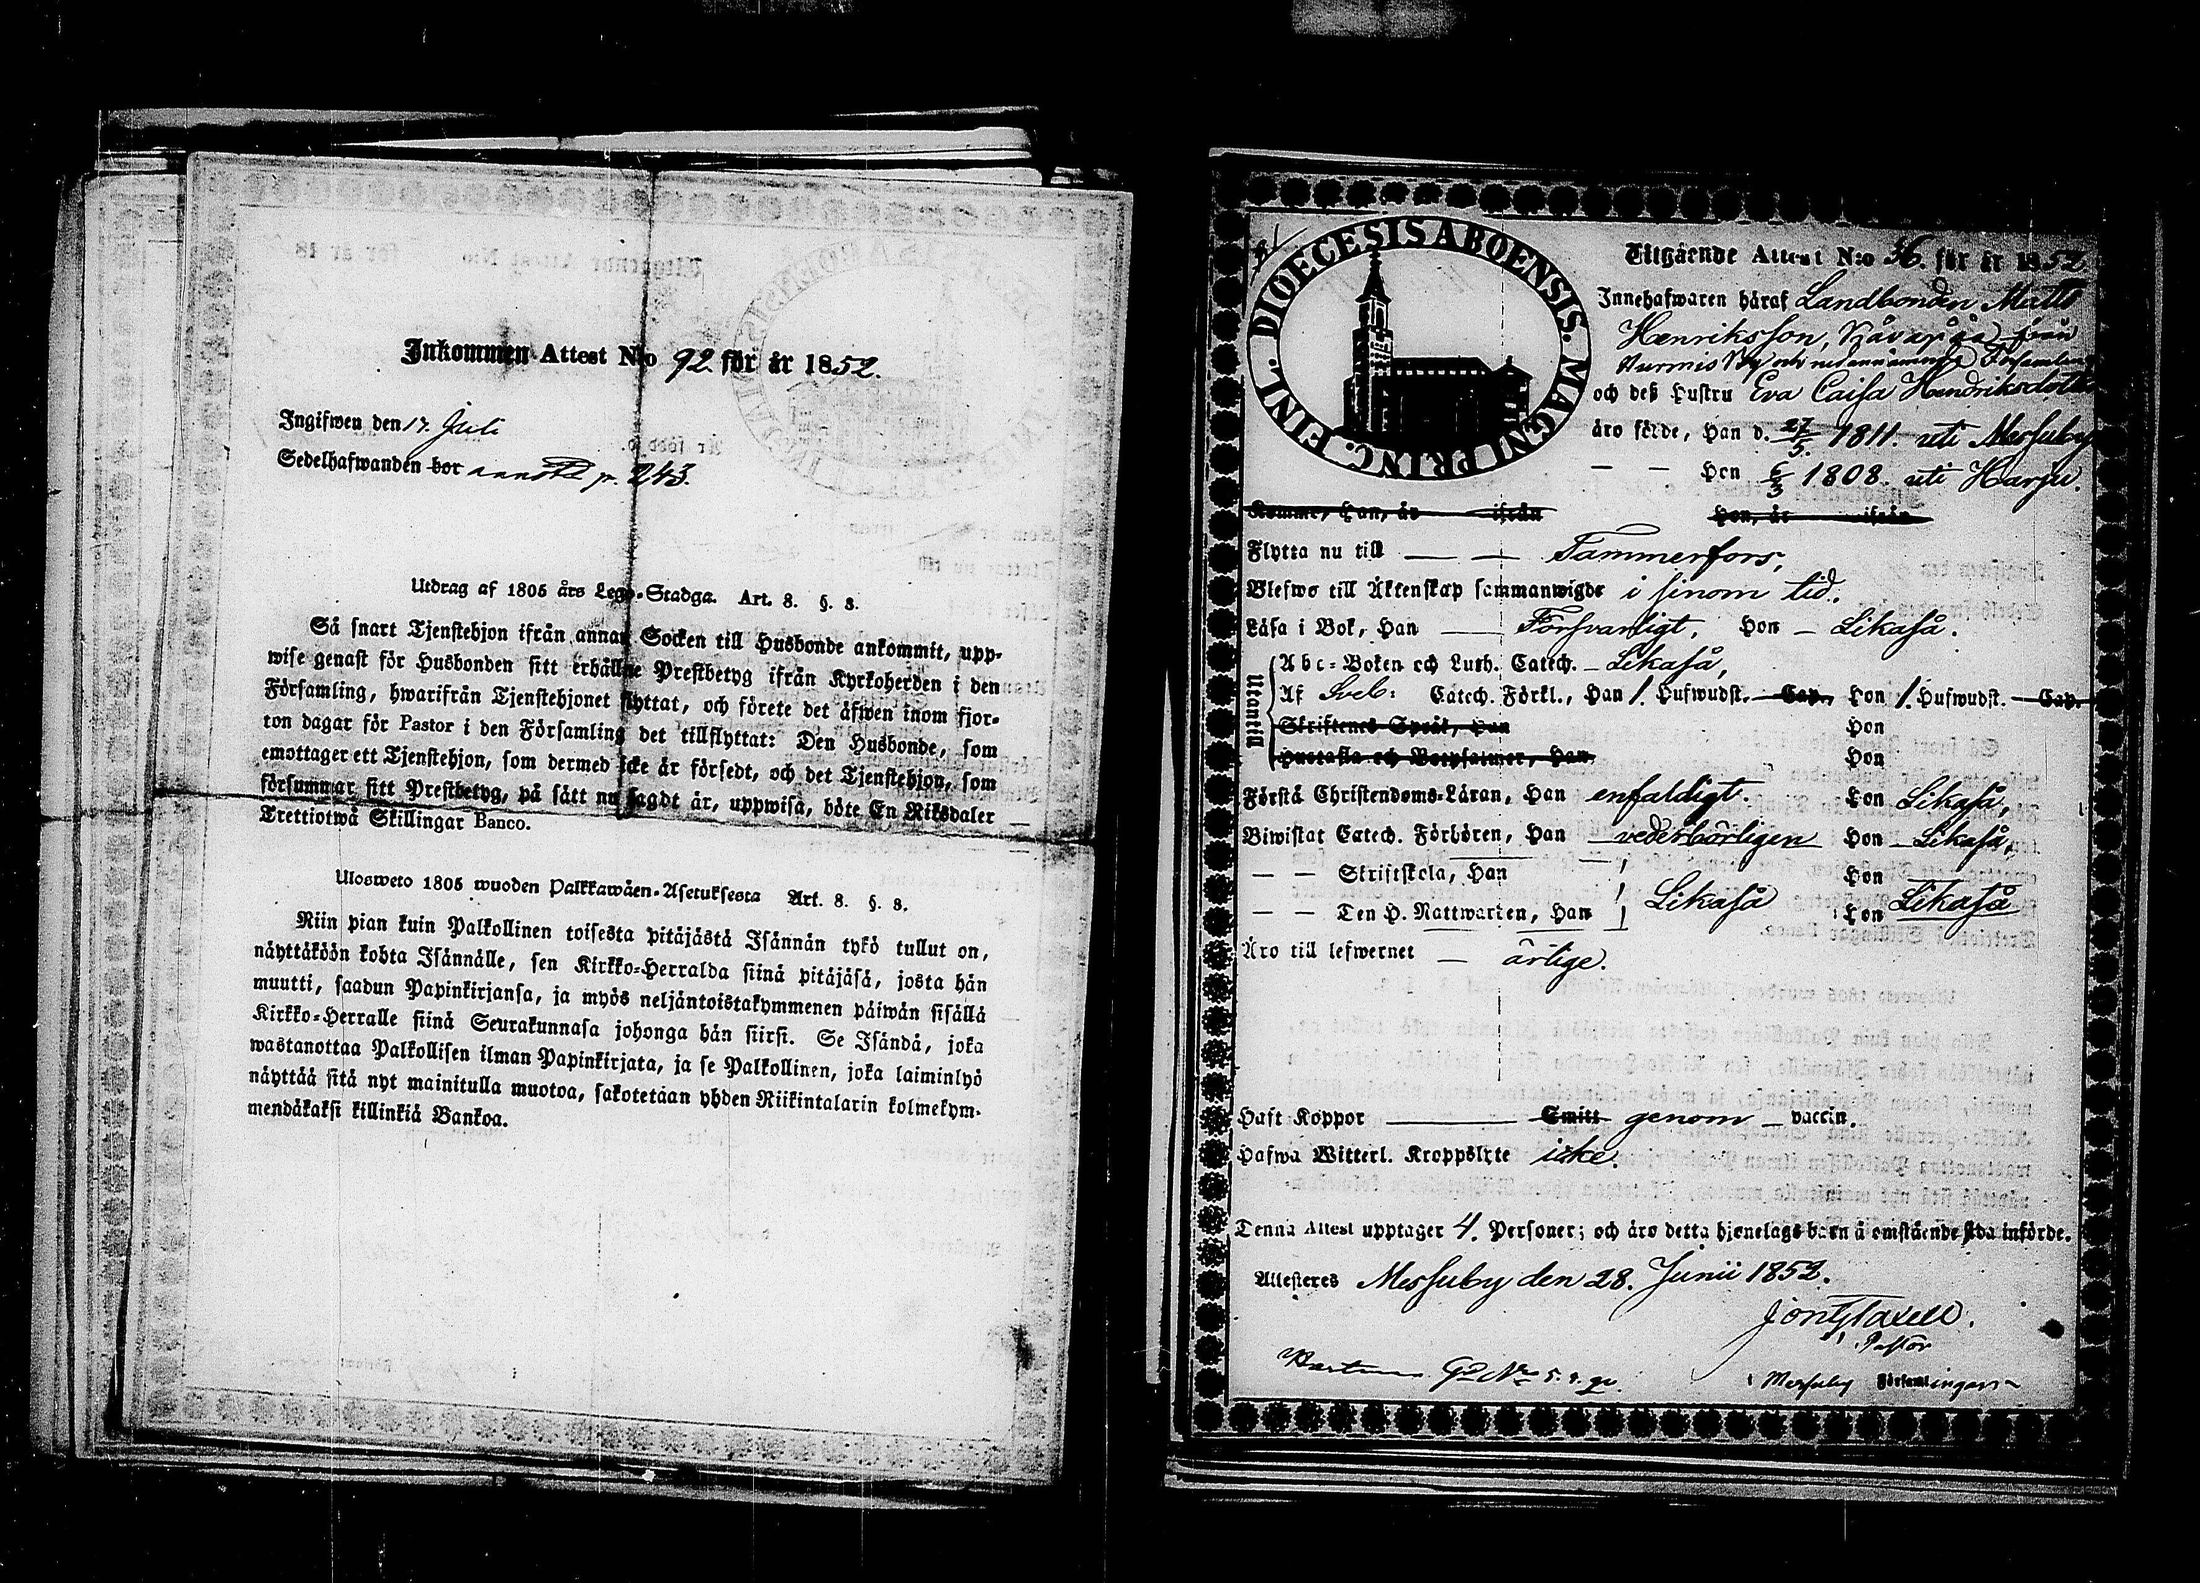 Inkommen Attest N:o 92. för år 1852.
Ingifwen den 17. Juli
Sedelhafwanden bor p. 243.
Utdrag af 1805 års Lego-Stadga. Art. 8. §. 8.
Så snart Tjenstehjon ifrån annan Socken till Husbonde ankommit, upp-
wise genast för Husbonden sitt erhållne Prestbetyg ifrån Kyrkoherden i den
Församling, hwarifrån Tjenstehjonet flyttat, och förete det äfwen inom fjor-
ton dagar för Pastor i den Församling det tillflyttat: Den Husbonde, som
emottager ett Tjenstehjon, som dermed icke är försedt, och det Tjenstehjon, som
försummar sitt Prestbetyg, på sätt nu sagdt är, uppwisa, böte En Riksdaler
Trettiotwå Skillingar Banco.
Ulosweto 1805 wuoden Palkkawäen-Asetuksesta Art. 8. §. 8.
Niin pian kuin Palkollinen toisesta pitäjästä Isännän tykö tullut on,
näyttäköön kohta Isännälle, sen Kirkko-Herralda siinä pitäjäsä, josta hän
muutti, saadun Papinkirjansa, ja myös neljäntoistakymmenen päiwän sisällä
Kirkko-Herralle siinä Seurakunnasa johonga hän siirsi. Se Isändä, joka
wastanottaa Palkollisen ilman Papinkirjata, ja se Palkollinen, joka laiminlyö
näyttää sitä nyt mainitulla muotoa, sakotetaan yhden Riikintalarin kolmekym-
mendäkaksi killinkiä Bankoa.
DIOECESIS ABOENSIS. MAGNI PRINC. FINL.
Utgående Attest N:o 36. för år 1852.
Innehafwaren häraf Landbonden Matts
Henriksson, från
Nurmis By och nedannämnda Församling
och dess Hustru Eva Caisa Hendriksdotter
äro födde, Han d. 27/5. 1811. uti Messuby
— — Hon 6/3 1808. uti Harju.
Komme, Han, år ifrån Hon, år ifrån
Flytta nu till — — Tammerfors,
Blefwo till Äktenskap sammanwigde i sinom tid.
Läsa i Bok, Han — Försvarligt. Hon – Likaså.
Utantill
Abc-Boken och Luth. Catech. – Likaså,
Af Sveb: Catech. Förkl., Han 1. Hufwudst. — Cap., Hon 1. Hufwudst. — Cap.
Skriftenes Språk, Han Hon
Hustafla och Botpsalmer, Han Hon
Förstå Christendoms-Läran, Han enfaldigt. Hon Likaså,
Biwistat Catech. Förhören, Han vederbörligen Hon – Likaså,
— — Skriftskola, Han Hon
— — Den H. Nattwarden, Han Likaså Hon Likaså
Äro till lefwernet — ärlige.
Haft Koppor — Smitt genom – vaccin.
Hafwa Witterl. Kroppslyte icke.
Denna Attest upptager 4. Personer; och äro detta hjonelags barn å omstående sida införde.
Attesteras Messuby den 28. Junii 1852.
Pastor
i Messuby Församlingar